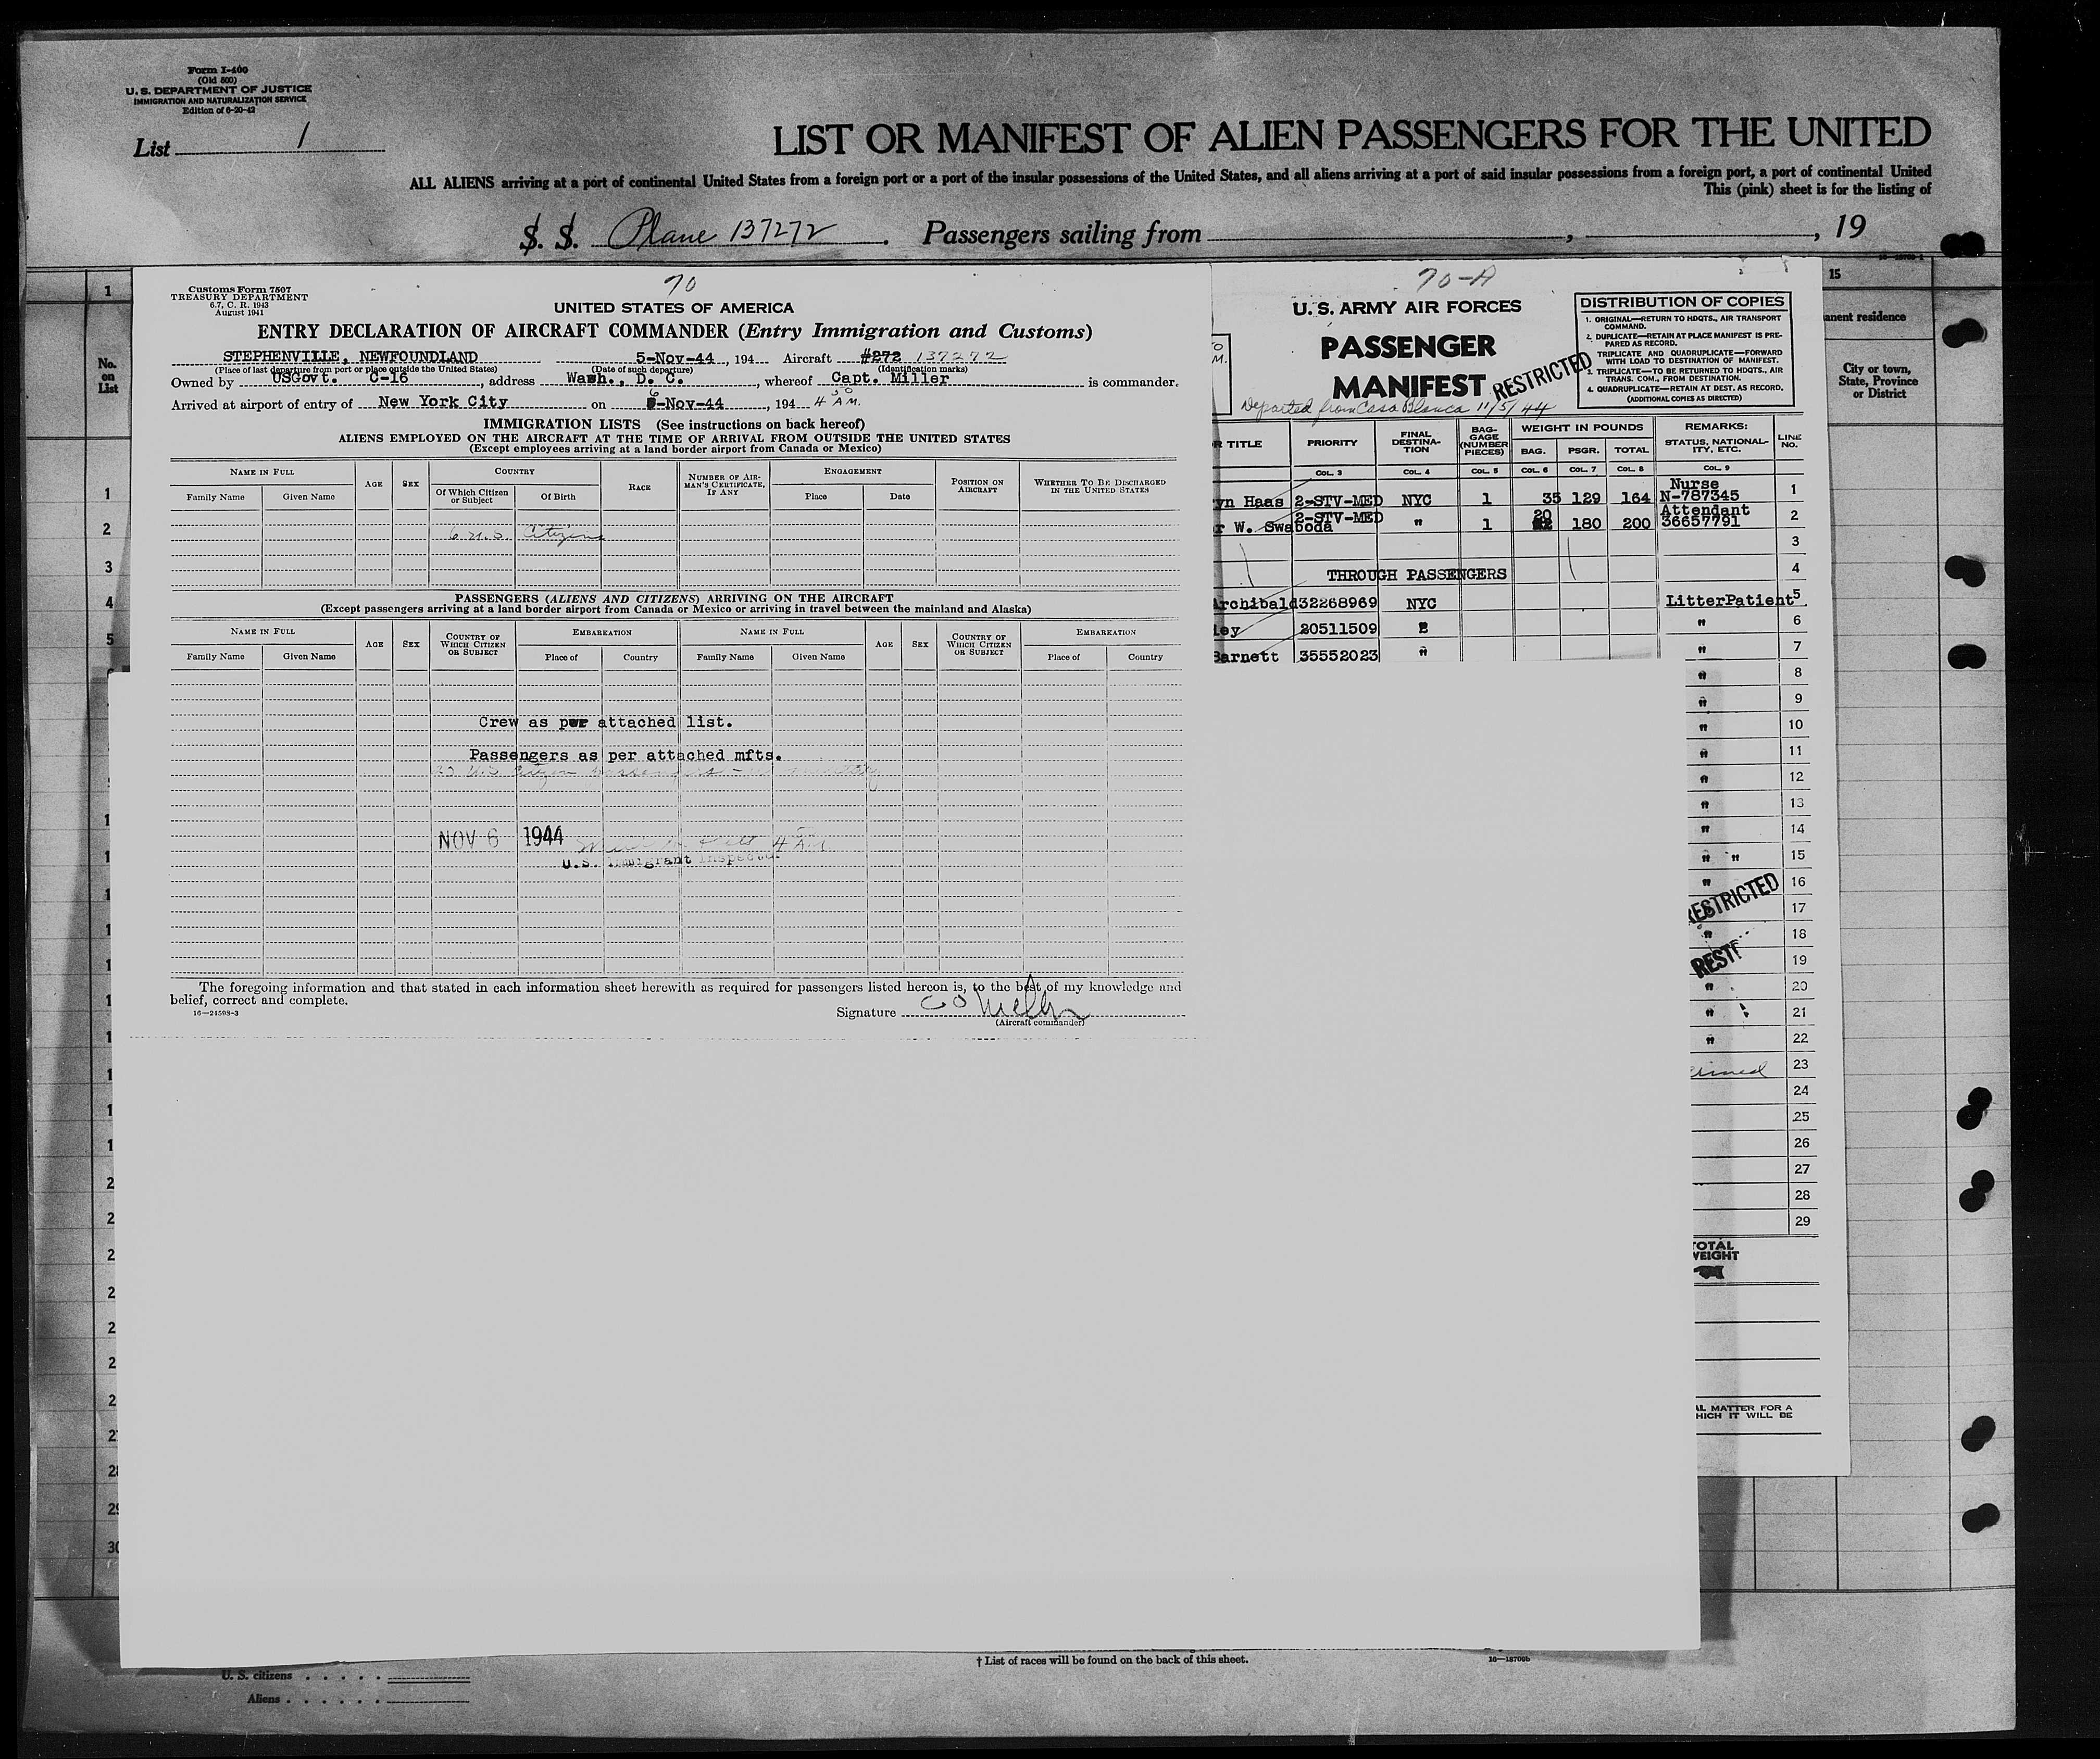 Form I-400
(Old 500)
U. S. DEPARTMENT OF JUSTICE
IMMIGRATION AND NATURALIZATION SERVICE
Edition of 6-20-42
List 1
LIST OR MANIFEST OF ALIEN PASSENGERS FOR THE UNITED
ALL ALIENS arriving at a port of continental United States from a foreign port or a port of the insular possessions of the United States, and all aliens arriving at a port of said insular possessions from a foreign port, a port of continental United
This (pink) sheet is for the listing of
S. S. Plane 137272. Passengers sailing from , , 19
70
Customs Form 7507
TREASURY DEPARTMENT
6.7, C. R. 1943
August 1941
UNITED STATES OF AMERICA
ENTRY DECLARATION OF AIRCRAFT COMMANDER (Entry Immigration and Customs)
STEPHENVILLE, NEWFOUNDLAND 5-Nov-44, 194 Aircraft #272 137272
(Place of last departure from port or place outside the United States) (Date of such departure) (Identification marks)
Owned by USGovt. C-16, address Wash., D. C., whereof Capt. Miller is commander.
Arrived at airport of entry of New York City on 6-Nov-44, 194 4 30 A.M.
IMMIGRATION LISTS (See instructions on back hereof)
ALIENS EMPLOYED ON THE AIRCRAFT AT THE TIME OF ARRIVAL FROM OUTSIDE THE UNITED STATES
(Except employees arriving at a land border airport from Canada or Mexico)
NAME IN FULL AGE SEX COUNTRY RACE NUMBER OF AIRMAN'S CERTIFICATE, IF ANY ENGAGEMENT POSITION ON AIRCRAFT WHETHER TO BE DISCHARGED IN THE UNITED STATES
Family Name Given Name Of Which Citizen or Subject Of Birth Place Date
6 U.S. Citizens
PASSENGERS (ALIENS AND CITIZENS) ARRIVING ON THE AIRCRAFT
(Except passengers arriving at a land border airport from Canada or Mexico or arriving in travel between the mainland and Alaska)
NAME IN FULL AGE SEX COUNTRY OF WHICH CITIZEN OR SUBJECT EMBARKATION NAME IN FULL AGE SEX COUNTRY OF WHICH CITIZEN OR SUBJECT EMBARKATION
Family Name Given Name Place of Country Family Name Given Name Place of Country
Crew as per attached list.
Passengers as per attached mfts.
U.S. Citizen passengers
NOV 6 1944 4 AM
U.S. Immigrant Inspector
The foregoing information and that stated in each information sheet herewith as required for passengers listed hereon is, to the best of my knowledge and
belief, correct and complete.
16—24598-3
Signature
(Aircraft commander)
70-A
U. S. ARMY AIR FORCES
PASSENGER
MANIFEST
RESTRICTED
Departed from Casa Blanca 11/5/44
DISTRIBUTION OF COPIES
1. ORIGINAL—RETURN TO HDQTS., AIR TRANSPORT
COMMAND.
2. DUPLICATE—RETAIN AT PLACE MANIFEST IS PRE-
PARED AS RECORD.
TRIPLICATE AND QUADRUPLICATE—FORWARD
WITH LOAD TO DESTINATION OF MANIFEST.
3. TRIPLICATE—TO BE RETURNED TO HDQTS., AIR
TRANS. COM., FROM DESTINATION.
4. QUADRUPLICATE—RETAIN AT DEST. AS RECORD.
(ADDITIONAL COPIES AS DIRECTED)
R TITLE PRIORITY FINAL DESTINA-TION BAG-GAGE (NUMBER PIECES) WEIGHT IN POUNDS REMARKS: STATUS, NATIONAL-ITY, ETC. LINE NO.
BAG. PSGR. TOTAL
COL. 3 COL. 4 COL. 5 COL. 6 COL. 7 COL. 8 COL. 9
yn Haas 2-STV-MED NYC 1 35 129 164 Nurse N-787345 1
r W. Swaboda 2-STV-MED " 1 20 180 200 Attendant 36657791 2
3
THROUGH PASSENGERS 4
Archibald 32268969 NYC LitterPatient 5
ley 20511509 " 6
Barnett 35552023 " " 7
" 8
" 9
" 10
" 11
" 12
" 13
" 14
" " 15
" 16
RESTRICTED
17
" 18
REST
19
" 20
" 21
" 22
23
24
25
26
27
28
29
TOTAL
WEIGHT
AL MATTER FOR A
HICH IT WILL BE
15
anent residence
City or town,
State, Province
or District
No.
on
List
1
1
2
3
4
5
29
30
U. S. citizens
Aliens
† List of races will be found on the back of this sheet.
16—18700b